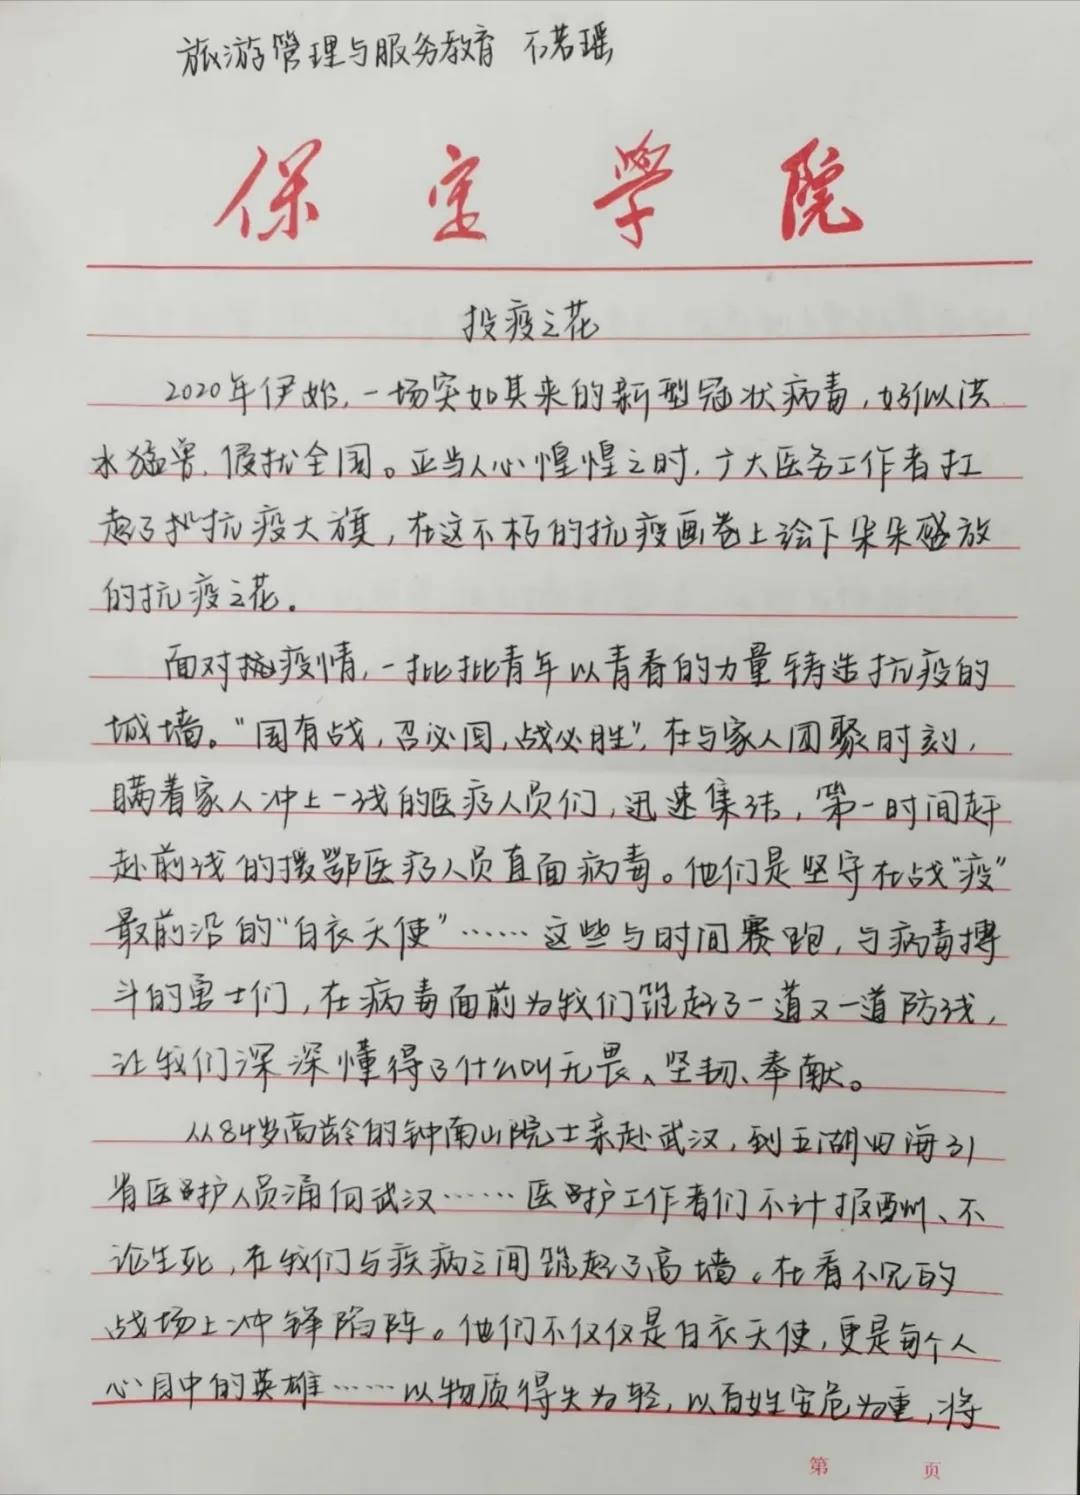 旅游管理与服务教育 石若瑶
保定学院
投疫之花
2020年伊始,一场突如其来的新型冠状病毒,好似洪
水猛兽,侵扰全国。正当人心惶惶之时,广大医务工作者扛
起了抗疫大旗,在这不朽的抗疫画卷上绘下朵朵盛放
的抗疫之花.
面对疫情,一批批青年以青春的力量铸造抗疫的
城墙。“国有战,召必回,战必胜”,在与家人团聚时刻,
瞒着家人冲上一线的医疗人员们,迅速集结,第一时间赶
赴前线的援鄂医疗人员直面病毒。他们是坚守在战“疫”
最前沿的“白衣天使”……这些与时间赛跑,与病毒搏
斗的勇士们,在病毒面前为我们筑起了一道又一道防线,
让我们深深懂得了什么叫无畏、坚韧、奉献。
从84岁高龄的钟南山院士亲赴武汉,到五湖四海31
省医护人员涌向武汉……医护工作者们不计报酬、不
论生死,在我们与疾病之间筑起了高墙。在看不见的
战场上冲锋陷阵。他们不仅仅是白衣天使,更是每个人
心目中的英雄……以物质得失为轻,以百姓安危为重,将
第 页